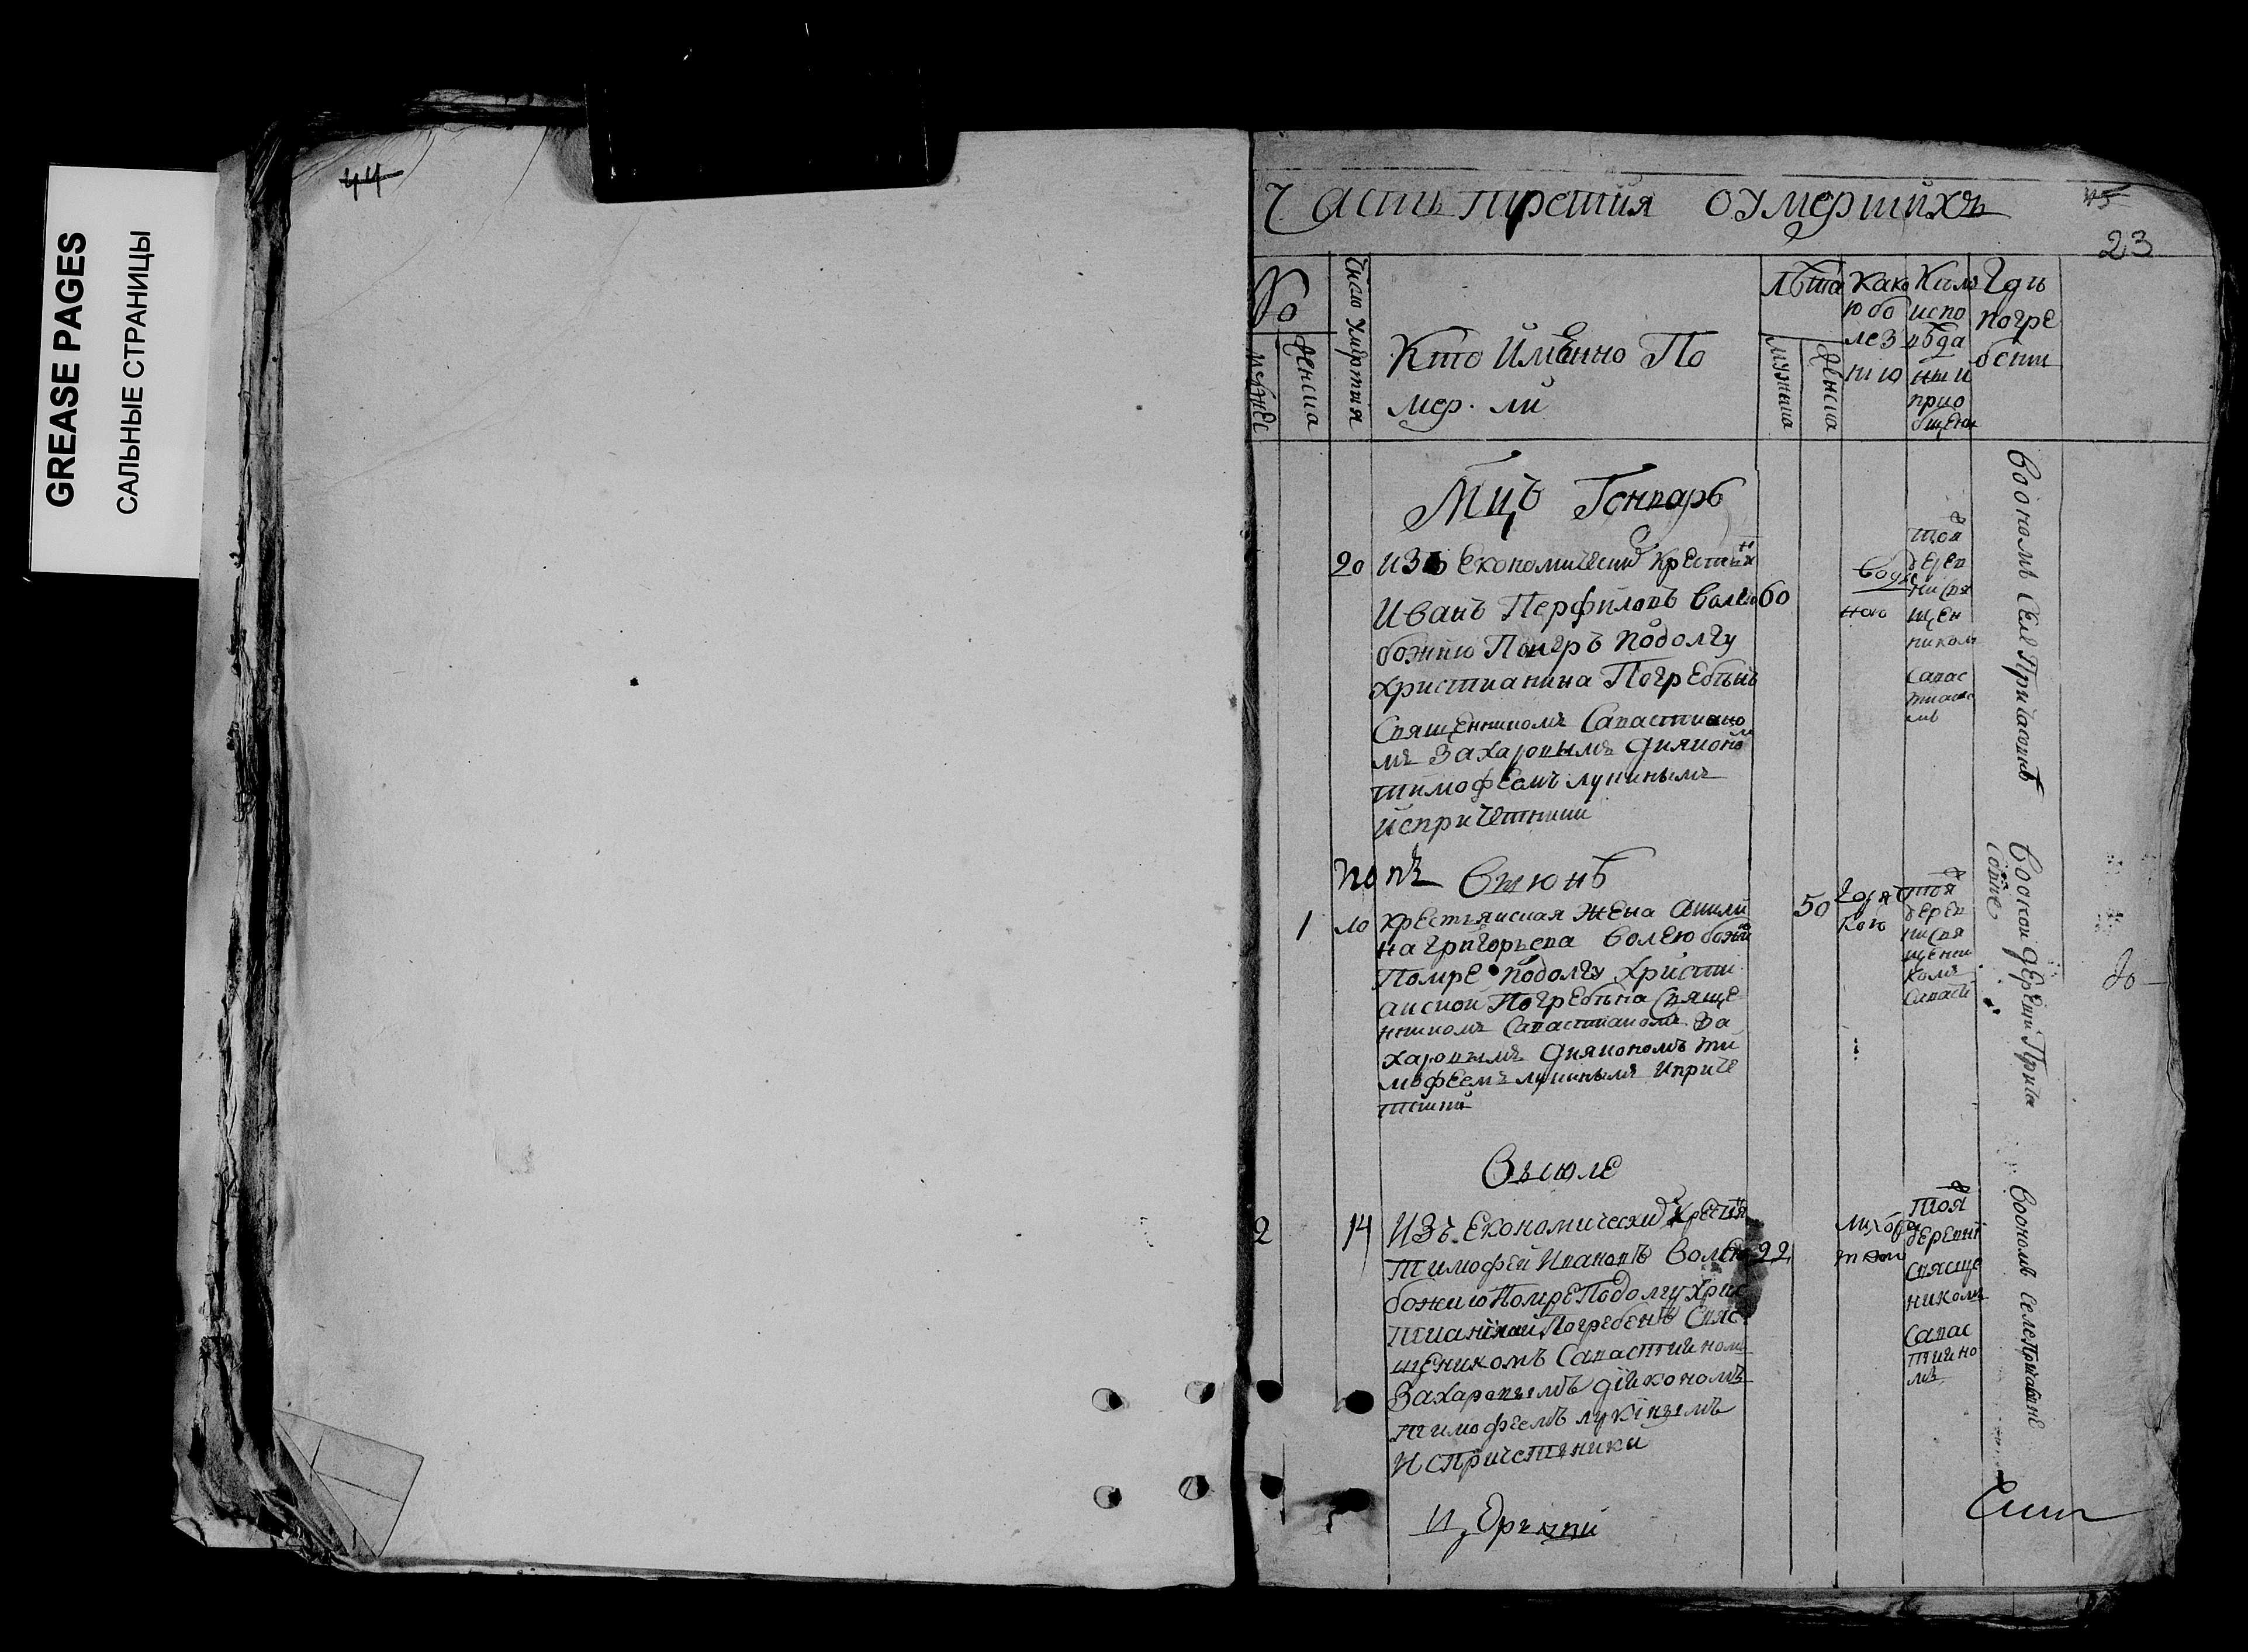 GREASE PAGES
САЛЬНЫЕ СТРАНИЦЫ
44
Часть третия о умершихъ
45
23
No
мужес
женска
Число Умертия
Кто Именно По
мер. ли
Лѣта
мужеска
женска
Како
ю бо
лез
нию
Кемъ
испо
вѣда
ны и
прио
бщены
Гдѣ
погре
бены
Мцъ Генварь
20 изъ Економически крестьян
Иванъ Перфиловъ Волею 60
божию Помръ подолгу
христианина Погребенъ
Священникомъ Савастиано
мъ Захаровымъ диякономъ
тимофеемъ лукинымъ
испричетники
той
дерев
ни свя
щен
никомъ
Савас
тиано
мъ
Воономъ Селе
Въ июнѣ
1 10 крестьянская жена Акили
на григорьева волею божи
Помре подолгу христи
анской Погребена Свяще
нникомъ Савастианомъ За
харовымъ диякономъ ти
мофеемъ лукинымъ и приче
тники
50
Горяч
кою
той
дерев
ни свя
щенни
комъ
Савасти
до
Въ июле
2 14 Изъ Економически крестья
тимофей Ивановъ Волею 22
божию Помре Подолгу Хрис
тианской Погребенъ Свяс
щеникомъ Савастияномъ
Захаровымъ дияконом
тимофеемъ лукинымъ
И спричетники
лихора
ткою
тоя
деревни
свясще
никомъ
Савас
тияно
мъ
Воономъ селе